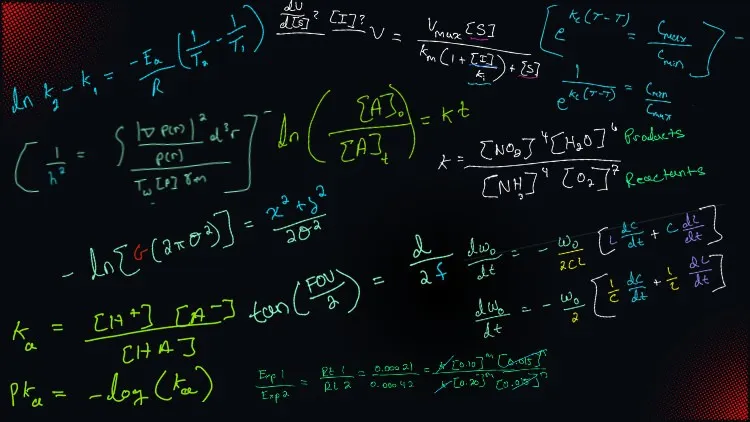 ln k₂ - k₁ = -Eₐ/R (1/T₂ - 1/T₁)
dV/d[S]? [I]? V = Vmax [S] / km (1 + [I]/ki) + [S]
[e^kc(T-T) = Cmax/Cmin
1/e^kc(T-T) = Cmin/Cmax] -
(1/h² = ∫ |∇ρ(r)|² d³r / ρ(r) / Tw [ρ]
ln ([A]₀/[A]t) = kt
K = [NO₂]⁴ [H₂O]⁶ / [NH₃]⁴ [O₂]⁷
Products
Reactants
- ln[G(2πσ²)] = x² + y² / 2σ²
tan(FOV/2) = d/2f
dω₀/dt = - ω₀/2CL [L dC/dt + C dL/dt]
dω₀/dt = - ω₀/2 [1/C dC/dt + 1/L dL/dt]
Kₐ = [H⁺] [A⁻] / [HA]
PKₐ = -log(Kₐ)
Exp 1/Exp 2 = Rt 1/Rt 2 = 0.00021/0.00042 = k[0.10]ᵐ [0.015]ⁿ / k[0.20]ᵐ [0.015]ⁿ